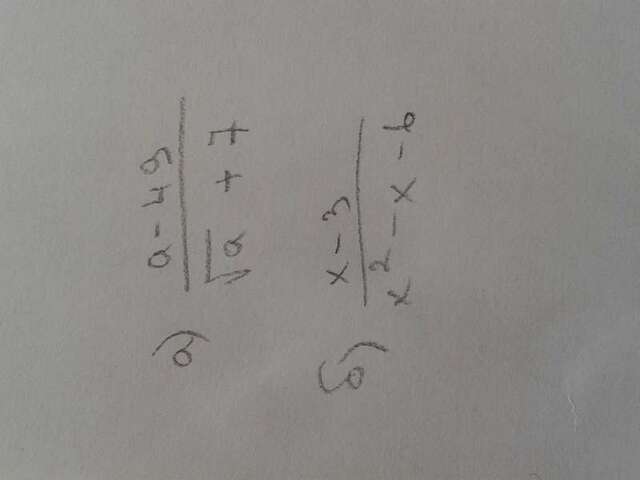 а) a - 49
√a + 7
б) x - 3
x² - x - 6